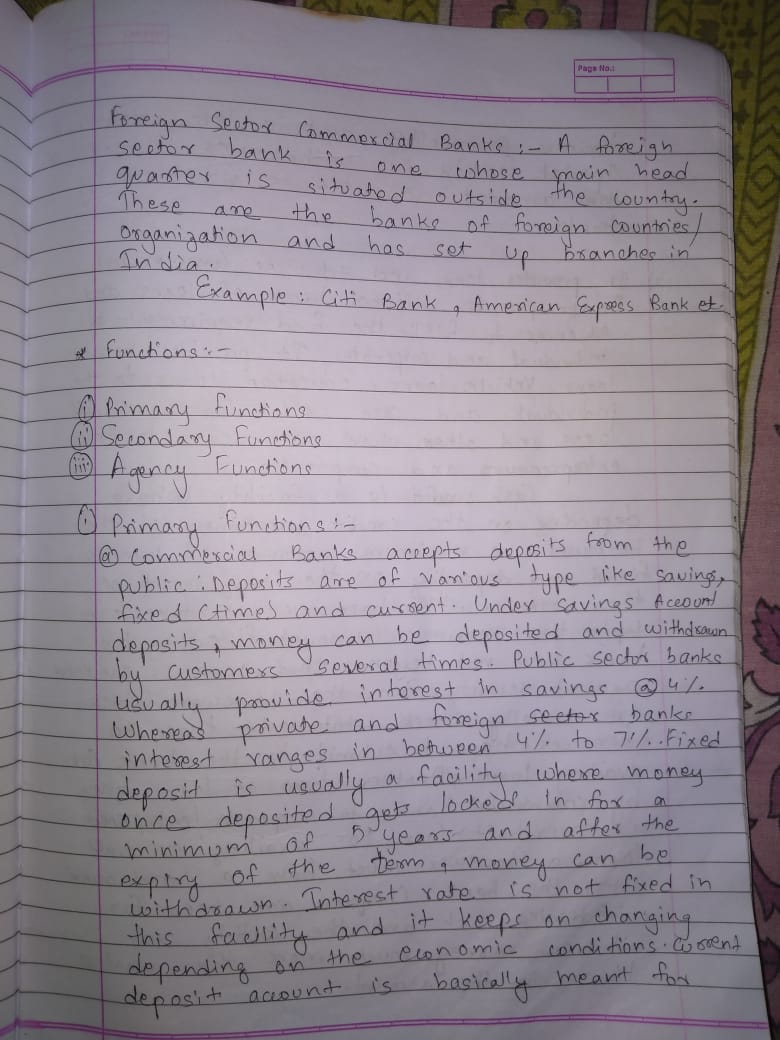 Page No.:
Foreign Sector Commercial Banks :- A foreign
sector bank is one whose main head
quarter is situated outside the country.
These are the banks of foreign countries/
organization and has set up branches in
India.
Example : Citi Bank, American Express Bank et.
* Functions :-
(i) Primary functions
(ii) Secondary Functions
(iii) Agency Functions
(i) Primary functions :-
(a) Commercial Banks accepts deposits from the
public. Deposits are of various type like savings,
fixed (time) and current. Under savings Account
deposits, money can be deposited and withdrawn
by customers several times. Public sector banks
usually provide interest in savings @ 4%.
Whereas private and foreign sector banks
interest ranges in between 4% to 7%. Fixed
deposit is usually a facility where money
once deposited gets locked in for a
minimum of 5 years and after the
expiry of the term, money can be
withdrawn. Interest rate is not fixed in
this facility and it keeps on changing
depending on the economic conditions. Current
deposit account is basically meant for